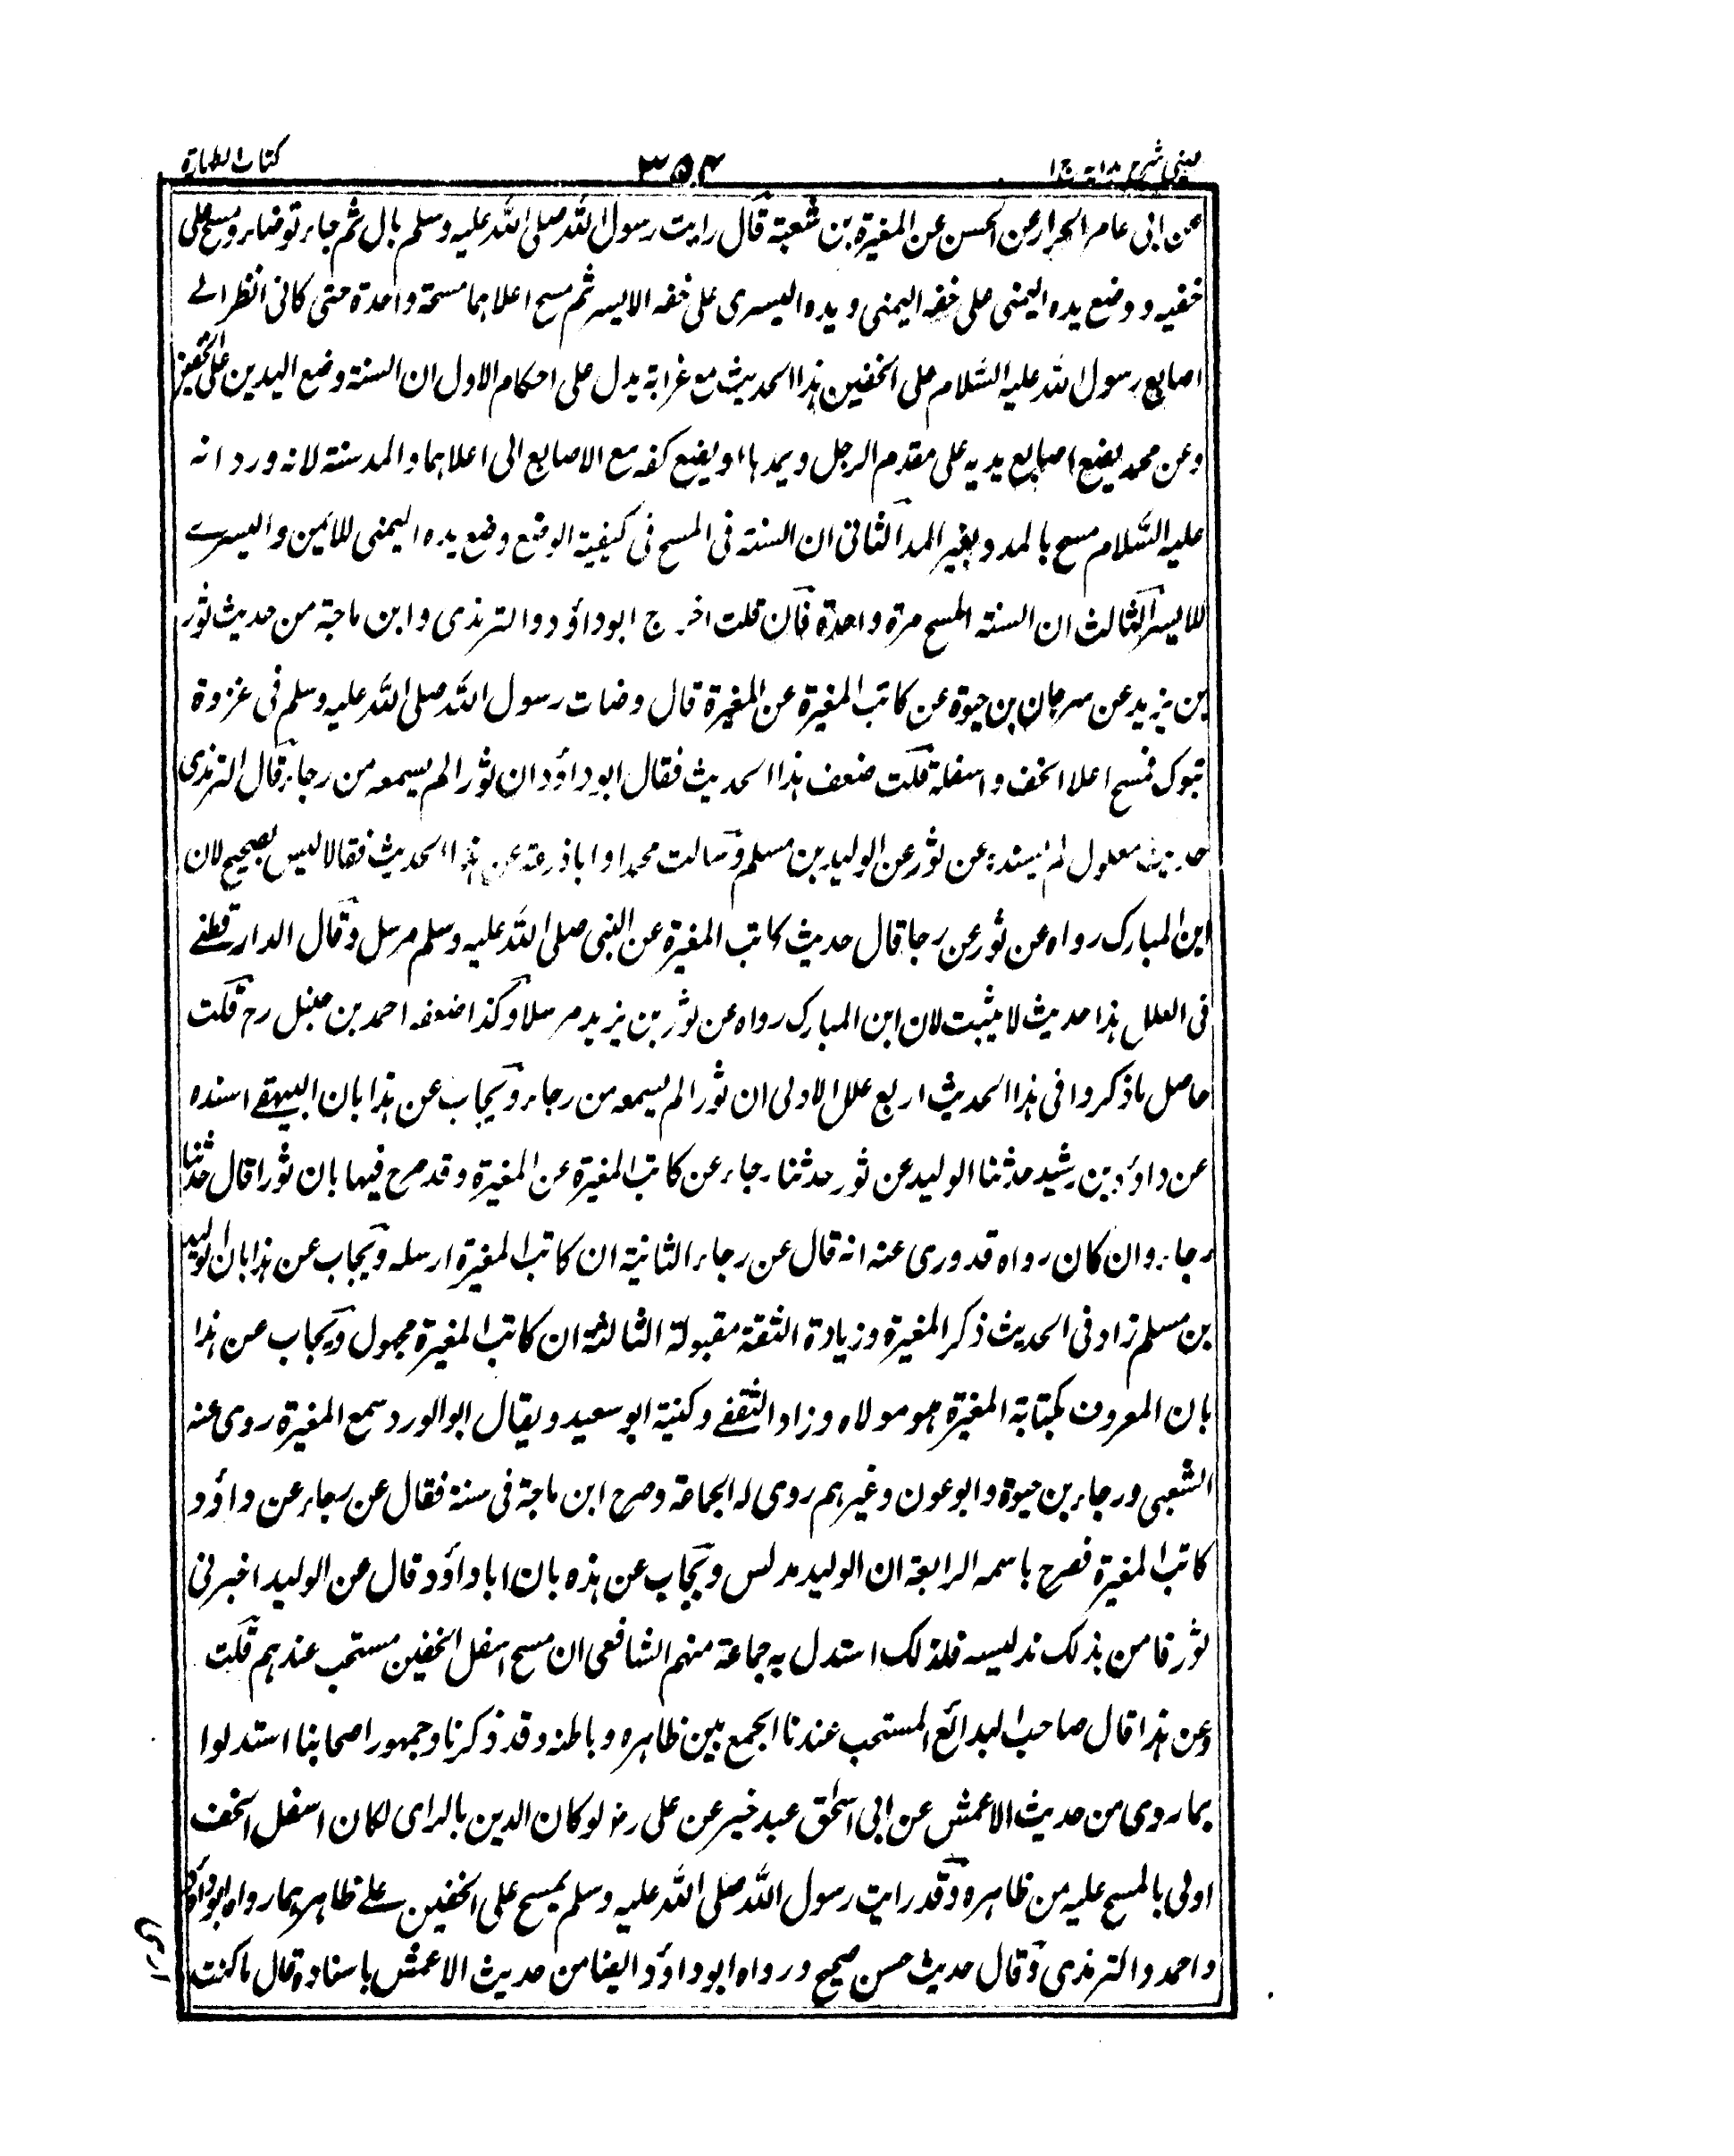 عینی شرح ہدایہ ج ا
۳۵۴
کتاب الطهارة
عن ابی عامر الخراز عن الحسن عن المغیرة بن شعبة قال رایت رسول الله صلی الله علیه وسلم بال ثم جاء توضاء ومسح علی
خفیه ووضع یده الیمنی علی خفه الیمنی ویده الیسری علی خفه الایسر ثم مسح اعلاہما مسحة واحدة حتی کانی انظر الے
اصابع رسول الله علیه السلام علی الخفین ہذا الحدیث مع غرابة یدل علی احکام الاول ان السنة وضع الیدین علی الخفین
وعن محمد یضع اصابع یدیه علی مقدم الرجل ویمدہا او یضع کفه مع الاصابع الی اعلاہما والمد سنة لانه ورد انه
علیه السلام مسح بالمد وبغیر المد الثانی ان السنة فی المسح فی کیفیة الوضع وضع یده الیمنی للایمن والیسرے
للایسر الثالث ان السنة المسح مرة واحدة فان قلت اخرج ابوداؤد والترمذی وابن ماجة من حدیث ثور
بن یزید عن سرجان بن حیوة عن کاتب المغیرة عن المغیرة قال وضات رسول الله صلی الله علیه وسلم فی غزوة
تبوک فمسح اعلا الخف واسفلة قلت ضعف ہذا الحدیث فقال ابوداؤد ان ثورا لم یسمعه من رجاء قال الترمذی
حدیث معلول لم یسنده عن ثور عن الولید بن مسلم وسالت محمدا واباذرعة عن ہذا الحدیث فقالا لیس بصحیح لان
ابن المبارک رواه عن ثور عن رجا قال حدیث کاتب المغیرة عن النبی صلی الله علیه وسلم مرسل وقال الدارقطنے
فی العلل ہذا حدیث لا یثبت لان ابن المبارک رواه عن ثور بن یزید مرسلا وکذا ضعفه احمد بن حنبل رح قلت
حاصل ماذکروا فی ہذا الحدیث اربع علل الاولی ان ثورا لم یسمعه من رجاء ویجاب عن ہذا بان البیهقے اسنده
عن داؤد بن رشید حدثنا الولید عن ثور حدثنا رجاء عن کاتب المغیرة عن المغیرة وقد صرح فیها بان ثورا قال حدثنا
رجاء وان کان رواه قد وری عنه انه قال عن رجاء الثانیة ان کاتب المغیرة ارسله ویجاب عن ہذا بان الولید
بن مسلم زاد فی الحدیث ذکر المغیرة وزیادة الثقة مقبولة الثالثة ان کاتب المغیرة مجهول ویجاب عن ہذا
بان المعروف بکتابة المغیرة ہو مولاه وزاد الثقفے وکنیة ابو سعید ویقال ابو الورد سمع المغیرة روی عنه
الشعبی ورجاء بن حیوة وابو عون وغیرہم روی له الجماعة وصرح ابن ماجة فی سننه فقال عن رجاء عن داؤد
کاتب المغیرة فصرح باسمه الرابعة ان الولید مدلس ویجاب عن ہذه بان اباداؤد قال عن الولید اخبرنی
ثور فامن بذلک تدلیسه فلذلک استدل به جماعة منهم الشافعی ان مسح اسفل الخفین مستحب عندہم قلت
وعن ہذا قال صاحب البدائع المستحب عندنا الجمع بین ظاہره وباطنه وقد ذکرنا وجمهور اصحابنا استدلوا
بما روی من حدیث الاعمش عن ابی اسحٰق عبد خیر عن علی رض لو کان الدین بالرای لکان اسفل الخف
اولی بالمسح علیه من ظاہره وقد رایت رسول الله صلی الله علیه وسلم یمسح علی الخفین علے ظاہرہما رواه ابوداؤد
واحمد والترمذی وقال حدیث حسن صحیح ورواه ابوداؤد ایضا من حدیث الاعمش باسناده قال ماکنت